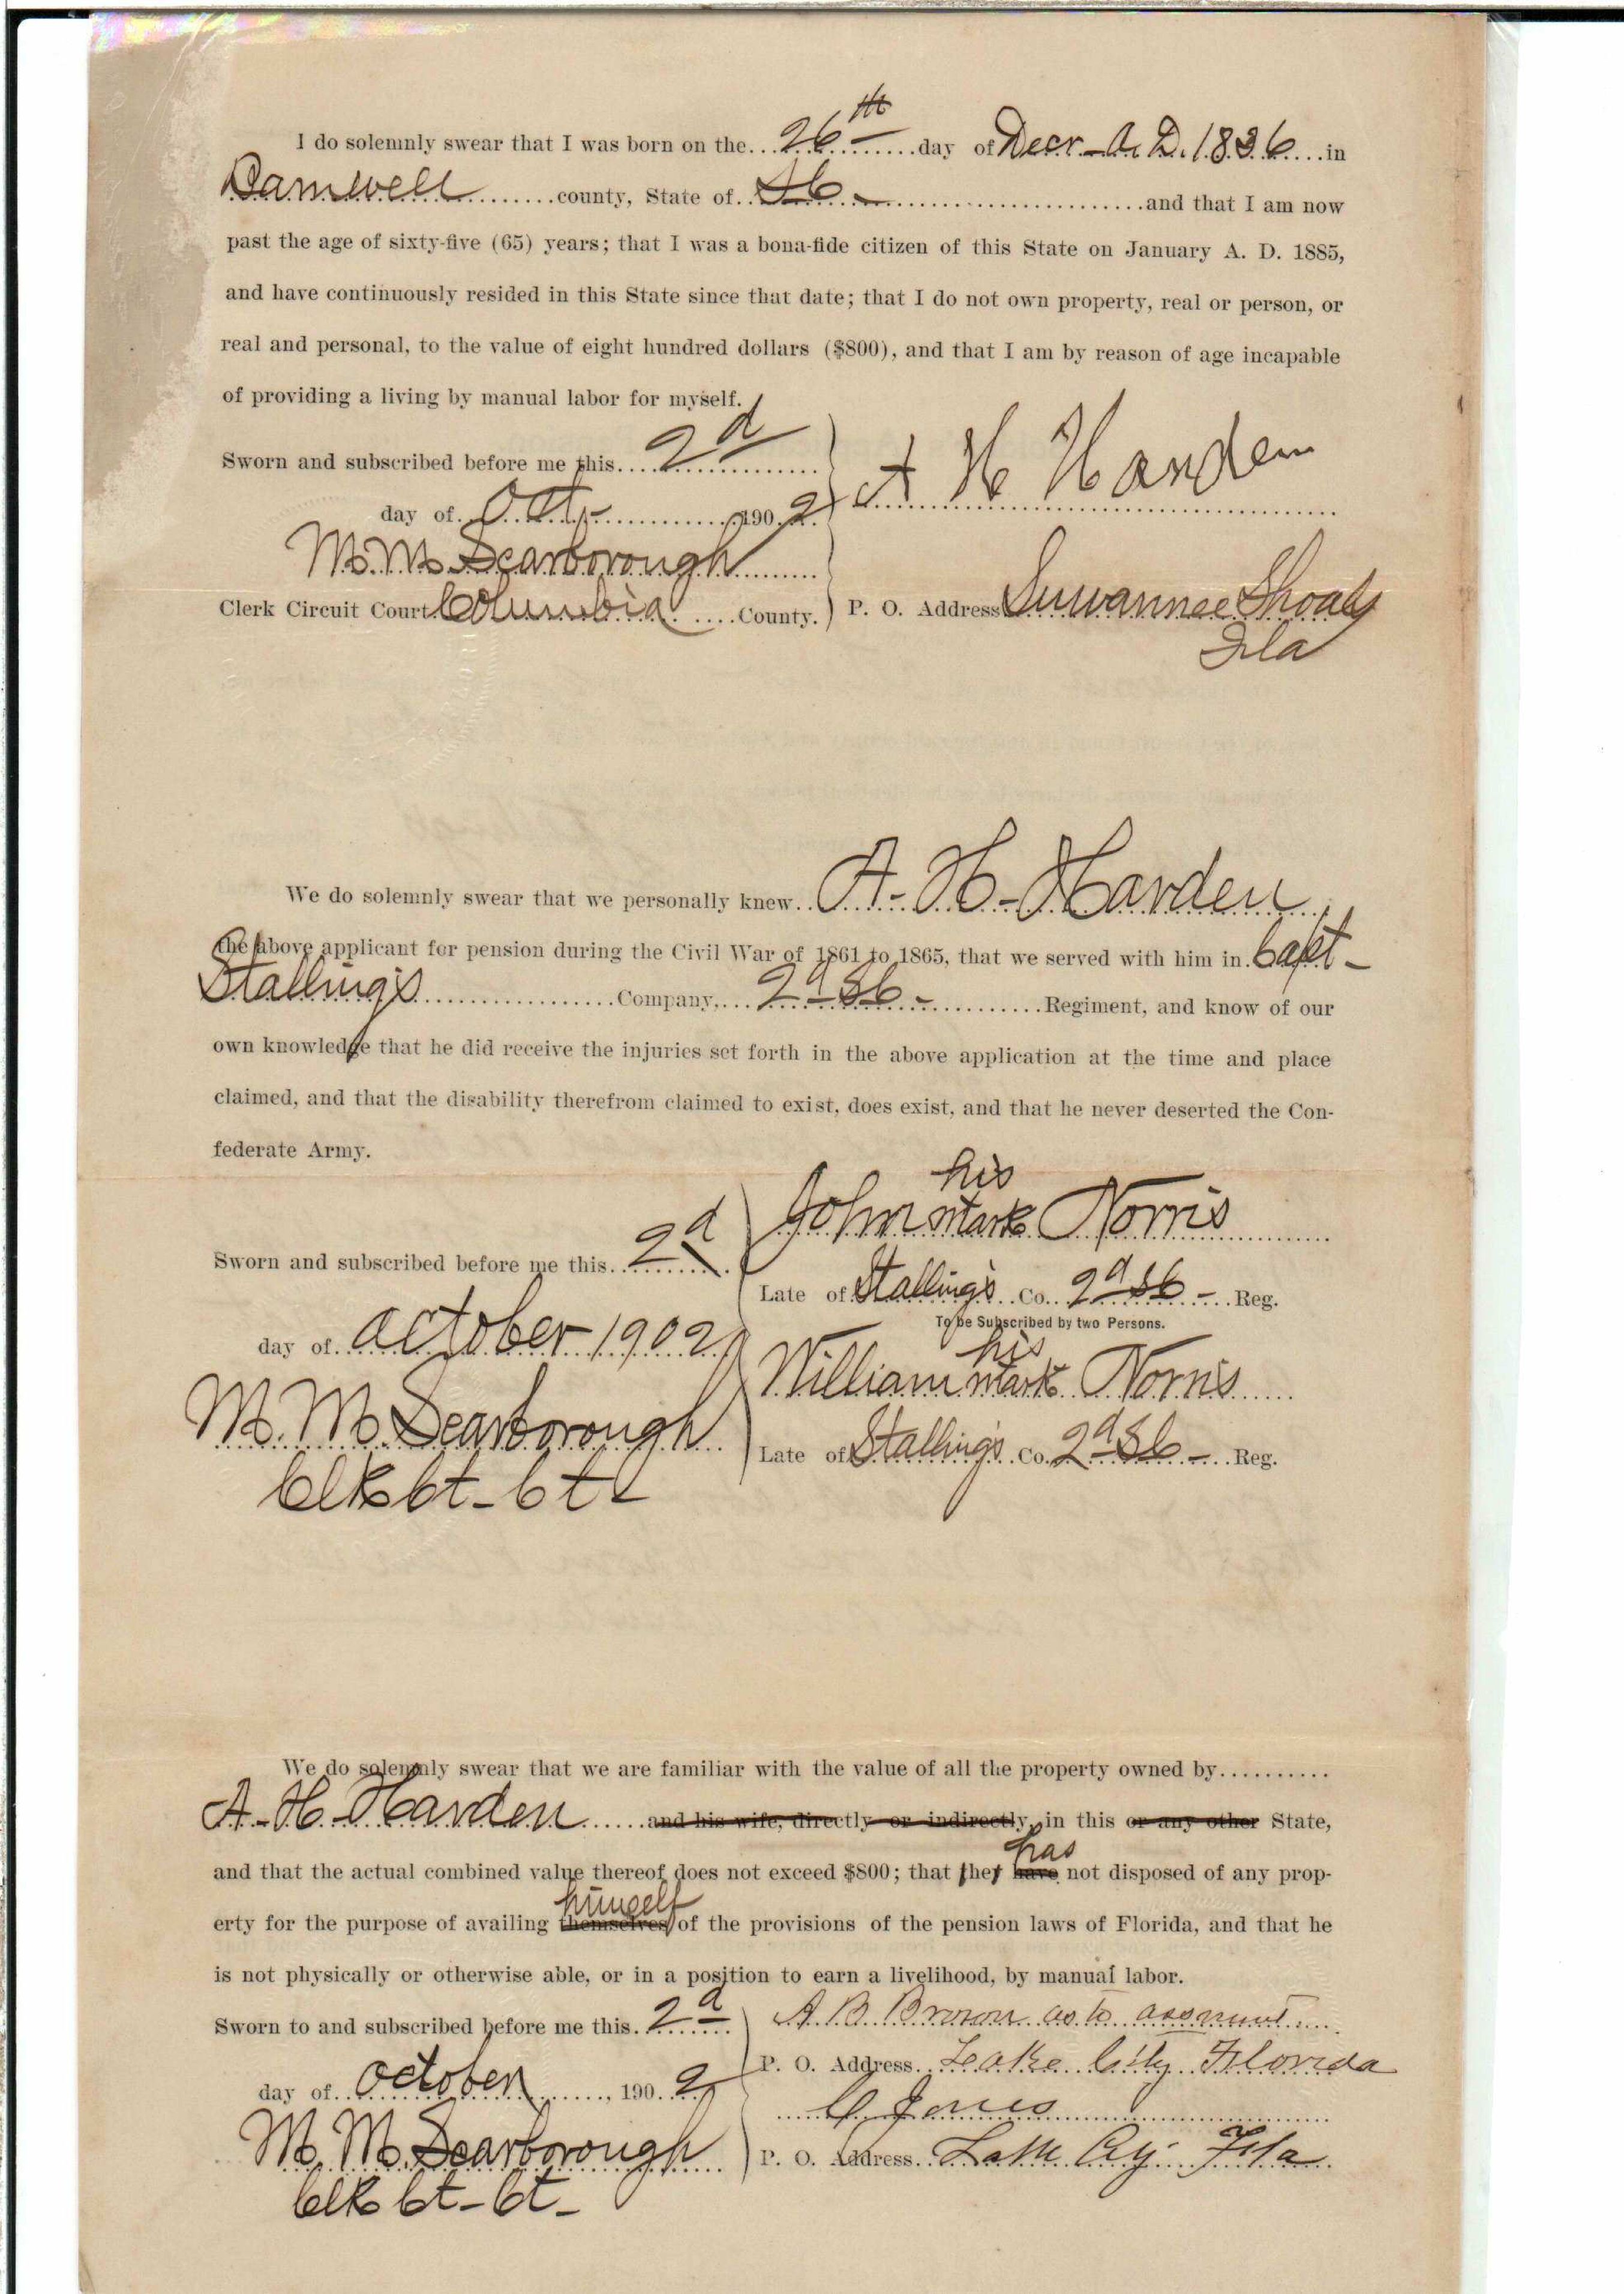 I do solemnly swear that I was born on the 26th day of Decr A. D. 1836 in
Barnwell county, State of SC and that I am now
past the age of sixty-five (65) years; that I was a bona-fide citizen of this State on January A. D. 1885,
and have continuously resided in this State since that date; that I do not own property, real or person, or
real and personal, to the value of eight hundred dollars ($800), and that I am by reason of age incapable
of providing a living by manual labor for myself.
Sworn and subscribed before me this 2d
A H Harden
day of Oct 1902
M. M. Scarborough
Clerk Circuit Court Columbia County.
P. O. Address Suwannee Shoals
Fla
We do solemnly swear that we personally knew A. H. Harden,
the above applicant for pension during the Civil War of 1861 to 1865, that we served with him in Capt
Stalling's Company, 2d SC Regiment, and know of our
own knowledge that he did receive the injuries set forth in the above application at the time and place
claimed, and that the disability therefrom claimed to exist, does exist, and that he never deserted the Con-
federate Army.
his
John mark Norris
Sworn and subscribed before me this 2d
Late of Stalling's Co. 2d SC Reg.
To be Subscribed by two Persons.
day of October 1902
his
William mark Norris
M. M. Scarborough
Late of Stalling's Co. 2d SC Reg.
Clk Ct Ct
We do solemnly swear that we are familiar with the value of all the property owned by
A. H. Harden and his wife, directly or indirectly, in this or any other State,
has
and that the actual combined value thereof does not exceed $800; that they have not disposed of any prop-
himself
erty for the purpose of availing themselves of the provisions of the pension laws of Florida, and that he
is not physically or otherwise able, or in a position to earn a livelihood, by manual labor.
Sworn to and subscribed before me this 2d
A B Brown as to
P. O. Address Lake City Florida
day of October, 1902
C Jones
M. M. Scarborough
P. O. Address Lake City Fla.
Clk Ct Ct